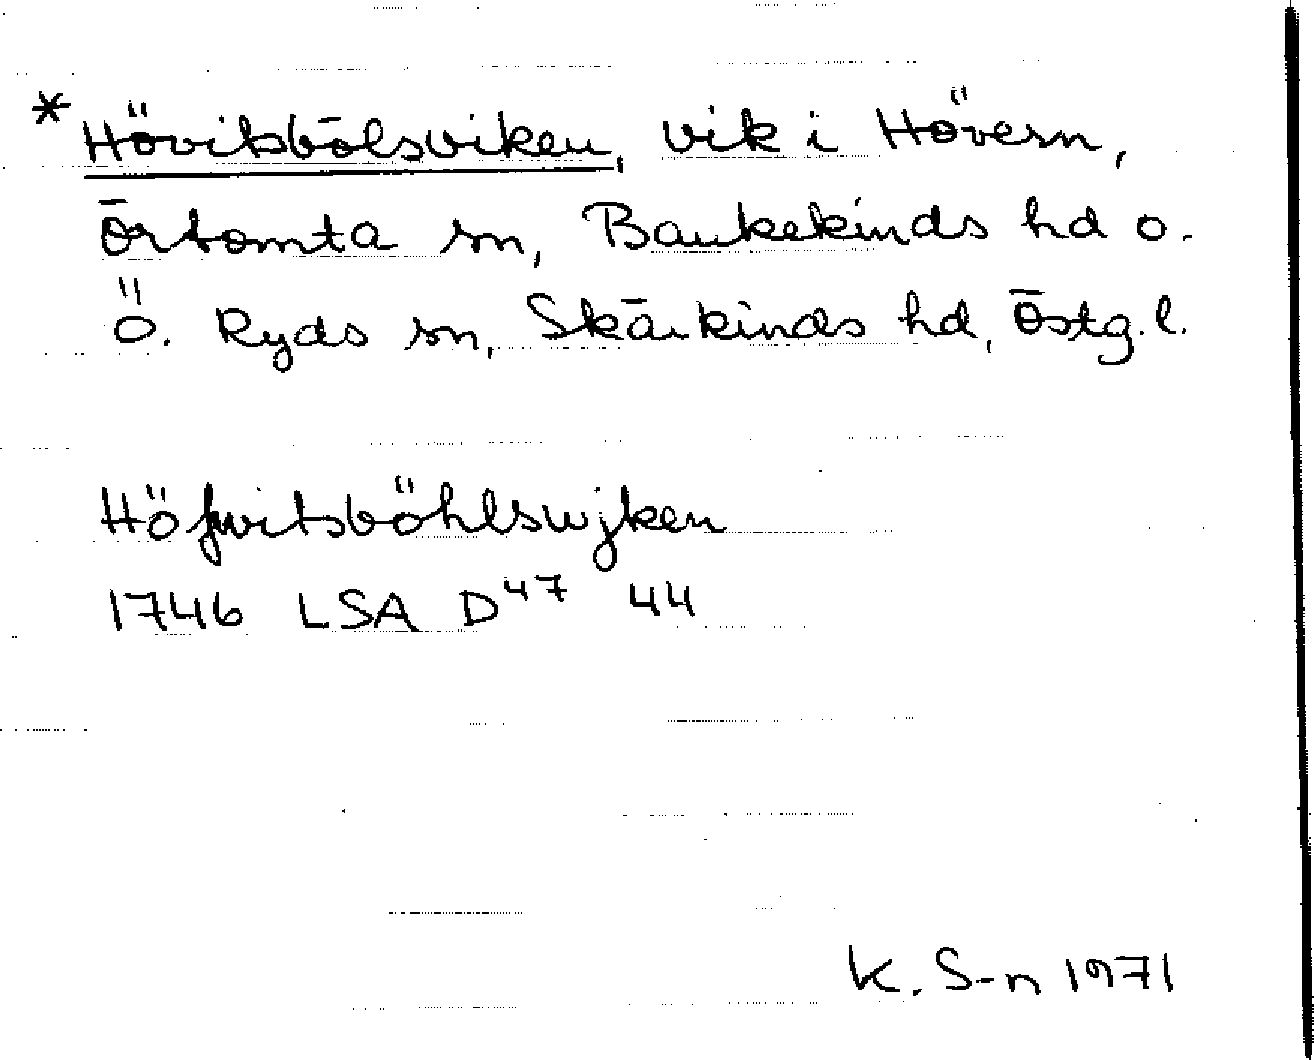 *Hövitsbölsviken, vik i Hövern,
Örtomta sn, Bankekinds hd o.
Ö. Ryds sn, Skärkinds hd, Östg.l.
Höfwitsböhlswjken
1746 LSA D47 44
K. S-n 1971